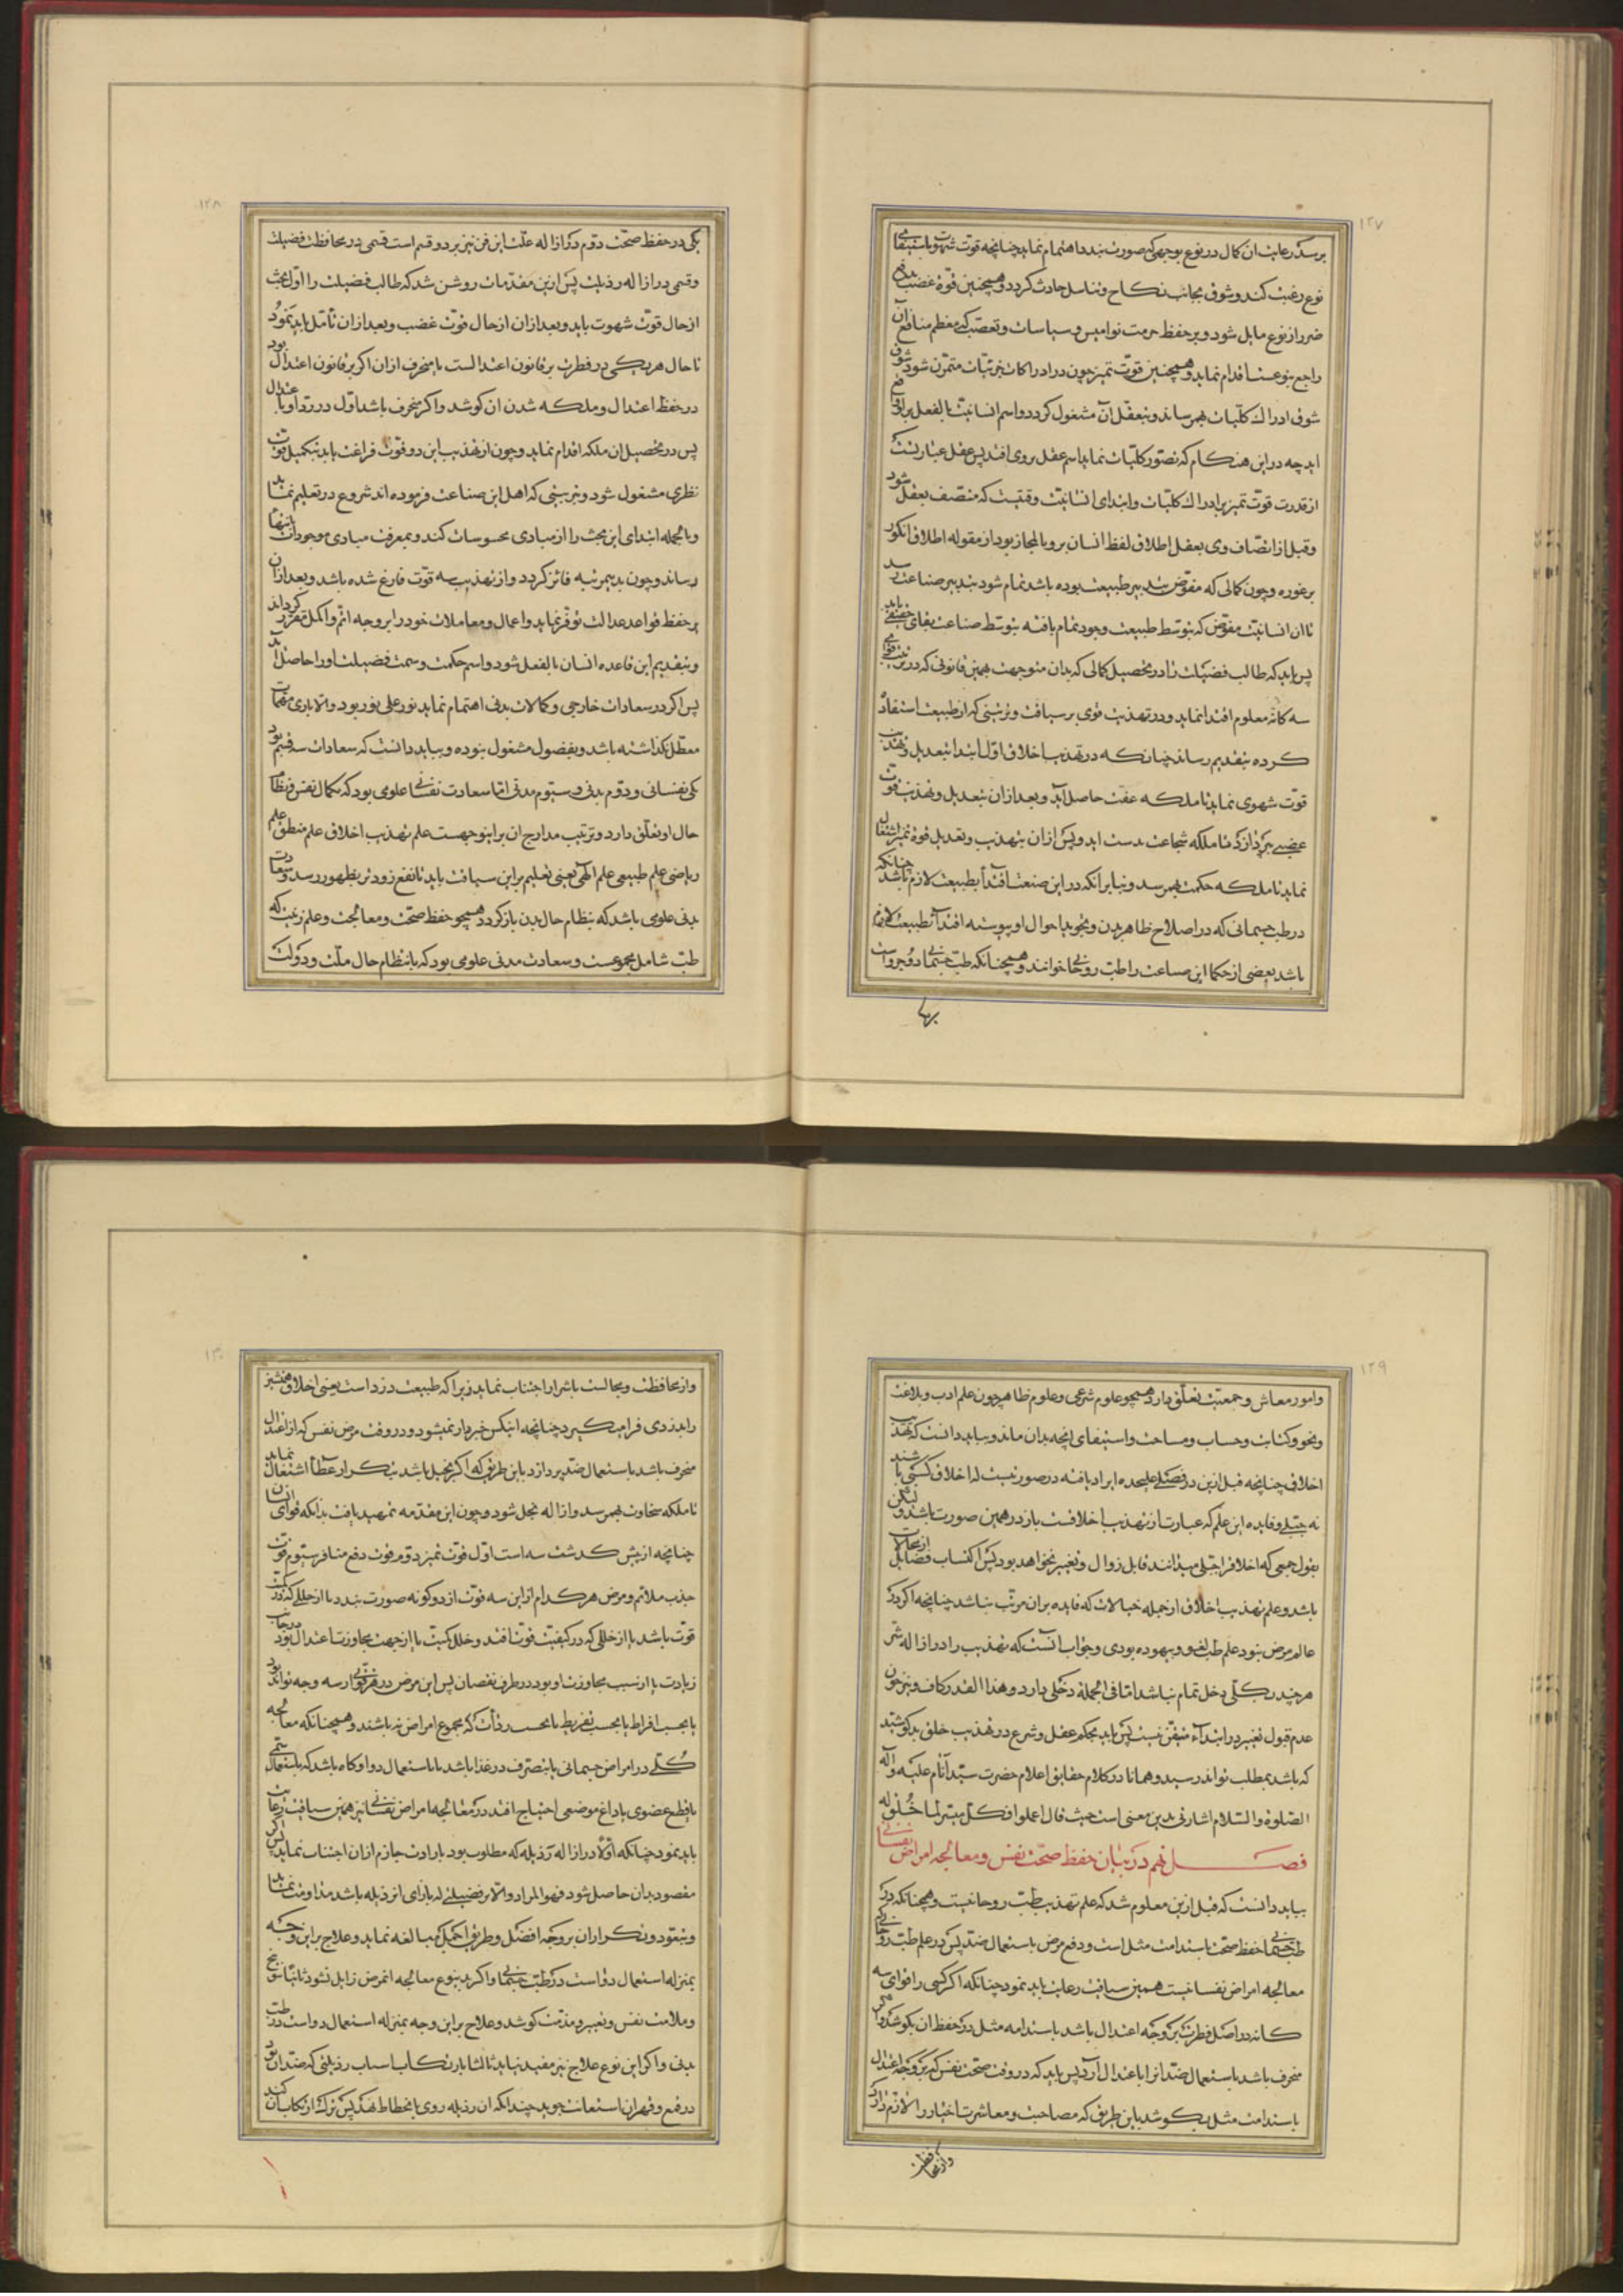 ۱۲۷
برسد رعایت ان کمال در نوع بوجهی که صورت بندد اهتمام نماید چنانچه قوت شهوت باستبقای
نوع رغبت کند و شوق بجانب نکاح و تناسل حادث کردد و همچنین قوّهٔ غضب بدفع
ضرر از نوع مایل شود و بر حفظ حرمت نوامیس و سیاسات و تعصب که معظم منافع آن
راجع بنوعست اقدام نماید و همچنین قوّت تمیز چون در ادراکات جزئیات متمرّن شود شوق
شوق ادراک کلّیات بهم رساند و بتعقل آن مشغول کردد و اسم انسانیّت بالفعل بر او واقع
اید چه در این هنکام که تصوّر کلّیات نماید اسم عقل بروی افتد پس عقل عبارتست
از قدرت قوّت تمیز بر ادراک کلّیات و ابتدای انسانیّت وقتیست که متّصف بعقل شود
و قبل از اتّصاف وی بعقل اطلاق لفظ انسان برو بالمجاز بود از مقوله اطلاق انکور
بر غوره و چون کمالی که مفوّض بتدبیر طبیعت بوده باشد تمام شود بتدبیر صناعت رسد
تا ان انسانیّت مفوّض که بتوسط طبیعت وجود تمام یافته بتوسط صناعت بقای حقیقی یابد
پس باید که طالب فضیلت را در تحصیل کمالی که بدان متوجهست همین قانونی که در ترتیب قوای
سه کانه معلوم افتد اقتدا نماید و در تهذیب قوی بر سیاقت و ترتیبی که از طبیعت استفاده
کرده بتقدیم رساند چنانکه در تهذیب اخلاق اوّل ابتدا بتعدیل و تهذیب
قوّت شهوی نماید تا ملکه عفّت حاصل آید و بعد ازان بتعدیل و تهذیب قوّت
غضبی پردازد تا ملکه شجاعت بدست اید و پس ازان بتهذیب و تعدیل قوهٔ تمیز اشتغال
نماید تا ملکه حکمت بهم رسد و بنابر آنکه در این صنعت اقتدأ بطبیعت لازم باشد چنانکه
در طب جسمانی که در اصلاح ظاهر بدن و تجوید احوال او پیوسته اقتدأ بطبیعت لازم
باشد بعضی از حکما این صناعت را طبّ روحانی خوانند و همچنانکه طبّ جسمانی دو جزو است
۱۲۸
یکی در حفظ صحّت دوّم در ازاله علّت این فن نیز بر دو قسم است قسمی در محافظت فضیلت
و قسمی در ازاله رذیلت پس ازین مقدّمات روشن شد که طالب فضیلت را اوّل بحث
از حال قوّت شهوت باید و بعد ازان از حال قوّت غضب و بعد ازان تأمّل باید نمود
تا حال هر یکی در فطرت بر قانون اعتدالست یا منحرف ازان اکر بر قانون اعتدال بود
در حفظ اعتدال و ملکه شدن ان کوشد و اکر منحرف باشد اوّل در ردّ او با عتدال
پس در تحصیل ان ملکه اقدام نماید و چون از تهذیب این دو قوّت فراغت یابد بتکمیل قوّت
نظری مشغول شود و بترتیبی که اهل این صناعت فرموده اند شروع در تعلیم نماید
و بالجمله ابتدای این بحث را از مبادی محسوسات کند و بمعرفت مبادی موجودات انتها
رساند و چون بدیمرتبه فائز کردد و از تهذیب سه قوّت فارغ شده باشد و بعد ازان
بر حفظ قواعد عدالت توفّر نماید و اعمال و معاملات خود را بر وجه اتمّ و اکمل مقرّر کرداند
و بتقدیم این قاعده انسان بالفعل شود و اسم حکمت و سمت فضیلت او را حاصل آید
پس اکر در سعادات خارجی و کمالات بدنی اهتمام نماید نور علی نور بود و الا باری مهمّات
معطّل نکذاشته باشد و بفضول مشغول نبوده و بباید دانست که سعادات سه قسم بود
یکی نفسانی و دوّم بدنی و سیّوم مدنی امّا سعادت نفسانی علومی بود که بکمال نفس و نظام
حال او تعلّق دارد و ترتیب مدارج ان براینوجهست علم تهذیب اخلاق علم منطق علم
ریاضی علم طبیعی علم الهی یعنی تعلیم براین سیاقت باید تا نفع زودتر بظهور رسد و سعادت
بدنی علومی باشد که بنظام حال بدن باز کردد همچو حفظ صحّت و معالجت و علم زینت که
طبّ شامل مجموعست و سعادت مدنی علومی بود که بانتظام حال ملّت و دولت
۱۲۹
و امور معاش و جمعیّت تعلّق دارد همچو علوم شرعی و علوم ظاهر چون علم ادب و بلاغت
و نحو و کتابت و حساب و مساحت و استیفای انچه بدان ماند و بباید دانست که تهذیب
اخلاق چنانچه قبل ازین در فصلی علیحده ایراد یافته در صورتیست که اخلاق کسبی باشند
نه جبلّی و فایده این علم که عبارت از تهذیب اخلاقست باز در همین صورت باشد و لیکن
بقول جمعی که اخلاق را جبلّی میدانند قابل زوال و تغییر نخواهد بود پس اکتساب فضایل از محالات
باشد و علم تهذیب اخلاق از جمله خیالات که فایده بران مرتّب نباشد چنانچه اکر در
عالم مرض نبود علم طب لغو و بیهوده بودی و جواب آنست که تهذیب را در ازاله شر
هر چند بکلّی دخل تمام نباشد امّا فی الجمله دخلی دارد و هذا القدر کاف و نیز چون
عدم قبول تغییر در ابتدأ متیقّن نیست پس باید بحکم عقل و شرع در تهذیب خلق بد کوشید
که باشد بمطلب تواند رسید و همانا در کلام حقایق اعلام حضرت سیّد انام علیه و آله
الصلوة و السّلام اشارتی بدین معنی است حیث قال اعلموا فکلّ میسّر لما خُلق له
فصل نهم در بیان حفظ صحّت نفس و معالجه امراض نفسانی
بباید دانست که قبل ازین معلوم شد که علم تهذیب طبّ روحانیست و همچنانکه در
طب جسمانی حفظ صحّت باستدامت مثل است و دفع مرض باستعمال ضدّ پس در علم طبّ روحانی که
معالجه امراض نفسانیست همین سیاقت رعایت باید نمود چنانکه اکر کسی را قوای سه
کانه در اصل فطرت بر وجه اعتدال باشد باستدامه مثل در حفظ ان بکوشد و اکر
منحرف باشد باستعمال ضدّ انرا با عتدال آرد پس باید که در وقت صحّت نفس که بر وجه اعتدال
باستدامت مثل بکوشد باین طریق که مصاحبت و معاشرت اخیار را لازم دارد
و از محافظت
۱۳۰
و از محافظت و مجالست با شرار اجتناب نماید زیرا که طبیعت دزد است یعنی اخلاق همنشین
را بدزدی فرا میکیرد چنانچه اینکس خبردار نمیشود و در وقت مرض نفس که از اعتدال
منحرف باشد باستعمال ضدّ پردازد باین طریق که اکر بخیل باشد بتکرار عطا اشتغال نماید
تا ملکه سخاوت بهم رسد و ازاله بخل شود و چون این مقدّمه تمهید یافت بدانکه قوای انسان
چنانچه از پیش کذشت سه است اوّل قوّت تمیز دوّم قوّت دفع منافر سیّوم قوّت
جذب ملائم و مرض هر کدام از این سه قوّت از دو کونه صورت بندد یا از خللی که در کمّیّت
قوت باشد یا از خللی که در کیفیّت قوّت افتد و خلل کمّیّت یا از جهت مجاوزت اعتدال بود در جانب
زیادت یا از سبب مجاوزت او بود در طرف نقصان پس این مرض در هر قوّتی از سه وجه تواند بود
یا بحسب افراط یا بحسب تفریط یا بحسب ردأت که مجموع امراض نه باشند و همچنانکه معالجه
کلّی در امراض جسمانی یا بتصرف در غذا باشد یا باستعمال دوا و کاه باشد که باستعمال سمّی
یا بقطع عضوی یا داغ موضعی احتیاج افتد در معالجه امراض نفسانی نیز همین سیاقت رعایت
باید نمود چنانکه اوّلاً در ازاله رذیله که مطلوب بود بارادت جازم ازان اجتناب نماید پس اکر
مقصود بدان حاصل شود فهو المراد و الا بر فضیلتی که بازای ان رذیله باشد مداومت نماید
و بتعوّد و تکرار ان بر وجه افضل و طریق اکمل مبالغه نماید و علاج براین وجه که
بمنزله استعمال دواست در طب جسمانی و اکر بدینوع معالجه انمرض زایل نشود ثانیاً توبیخ
و ملامت نفس و تعییر و مذمّت کوشد و علاج براین وجه بمنزله استعمال دواست در طبّ
بدنی و اکر این نوع علاج نیز مفید نیاید ثالثا بارتکاب اسباب رذیلتی که ضدّ ان بود
در قمع و قهر ان استعانت جوید چندانکه ان رذیله روی بانحطاط نهد پس ترک ارتکاب ان کند